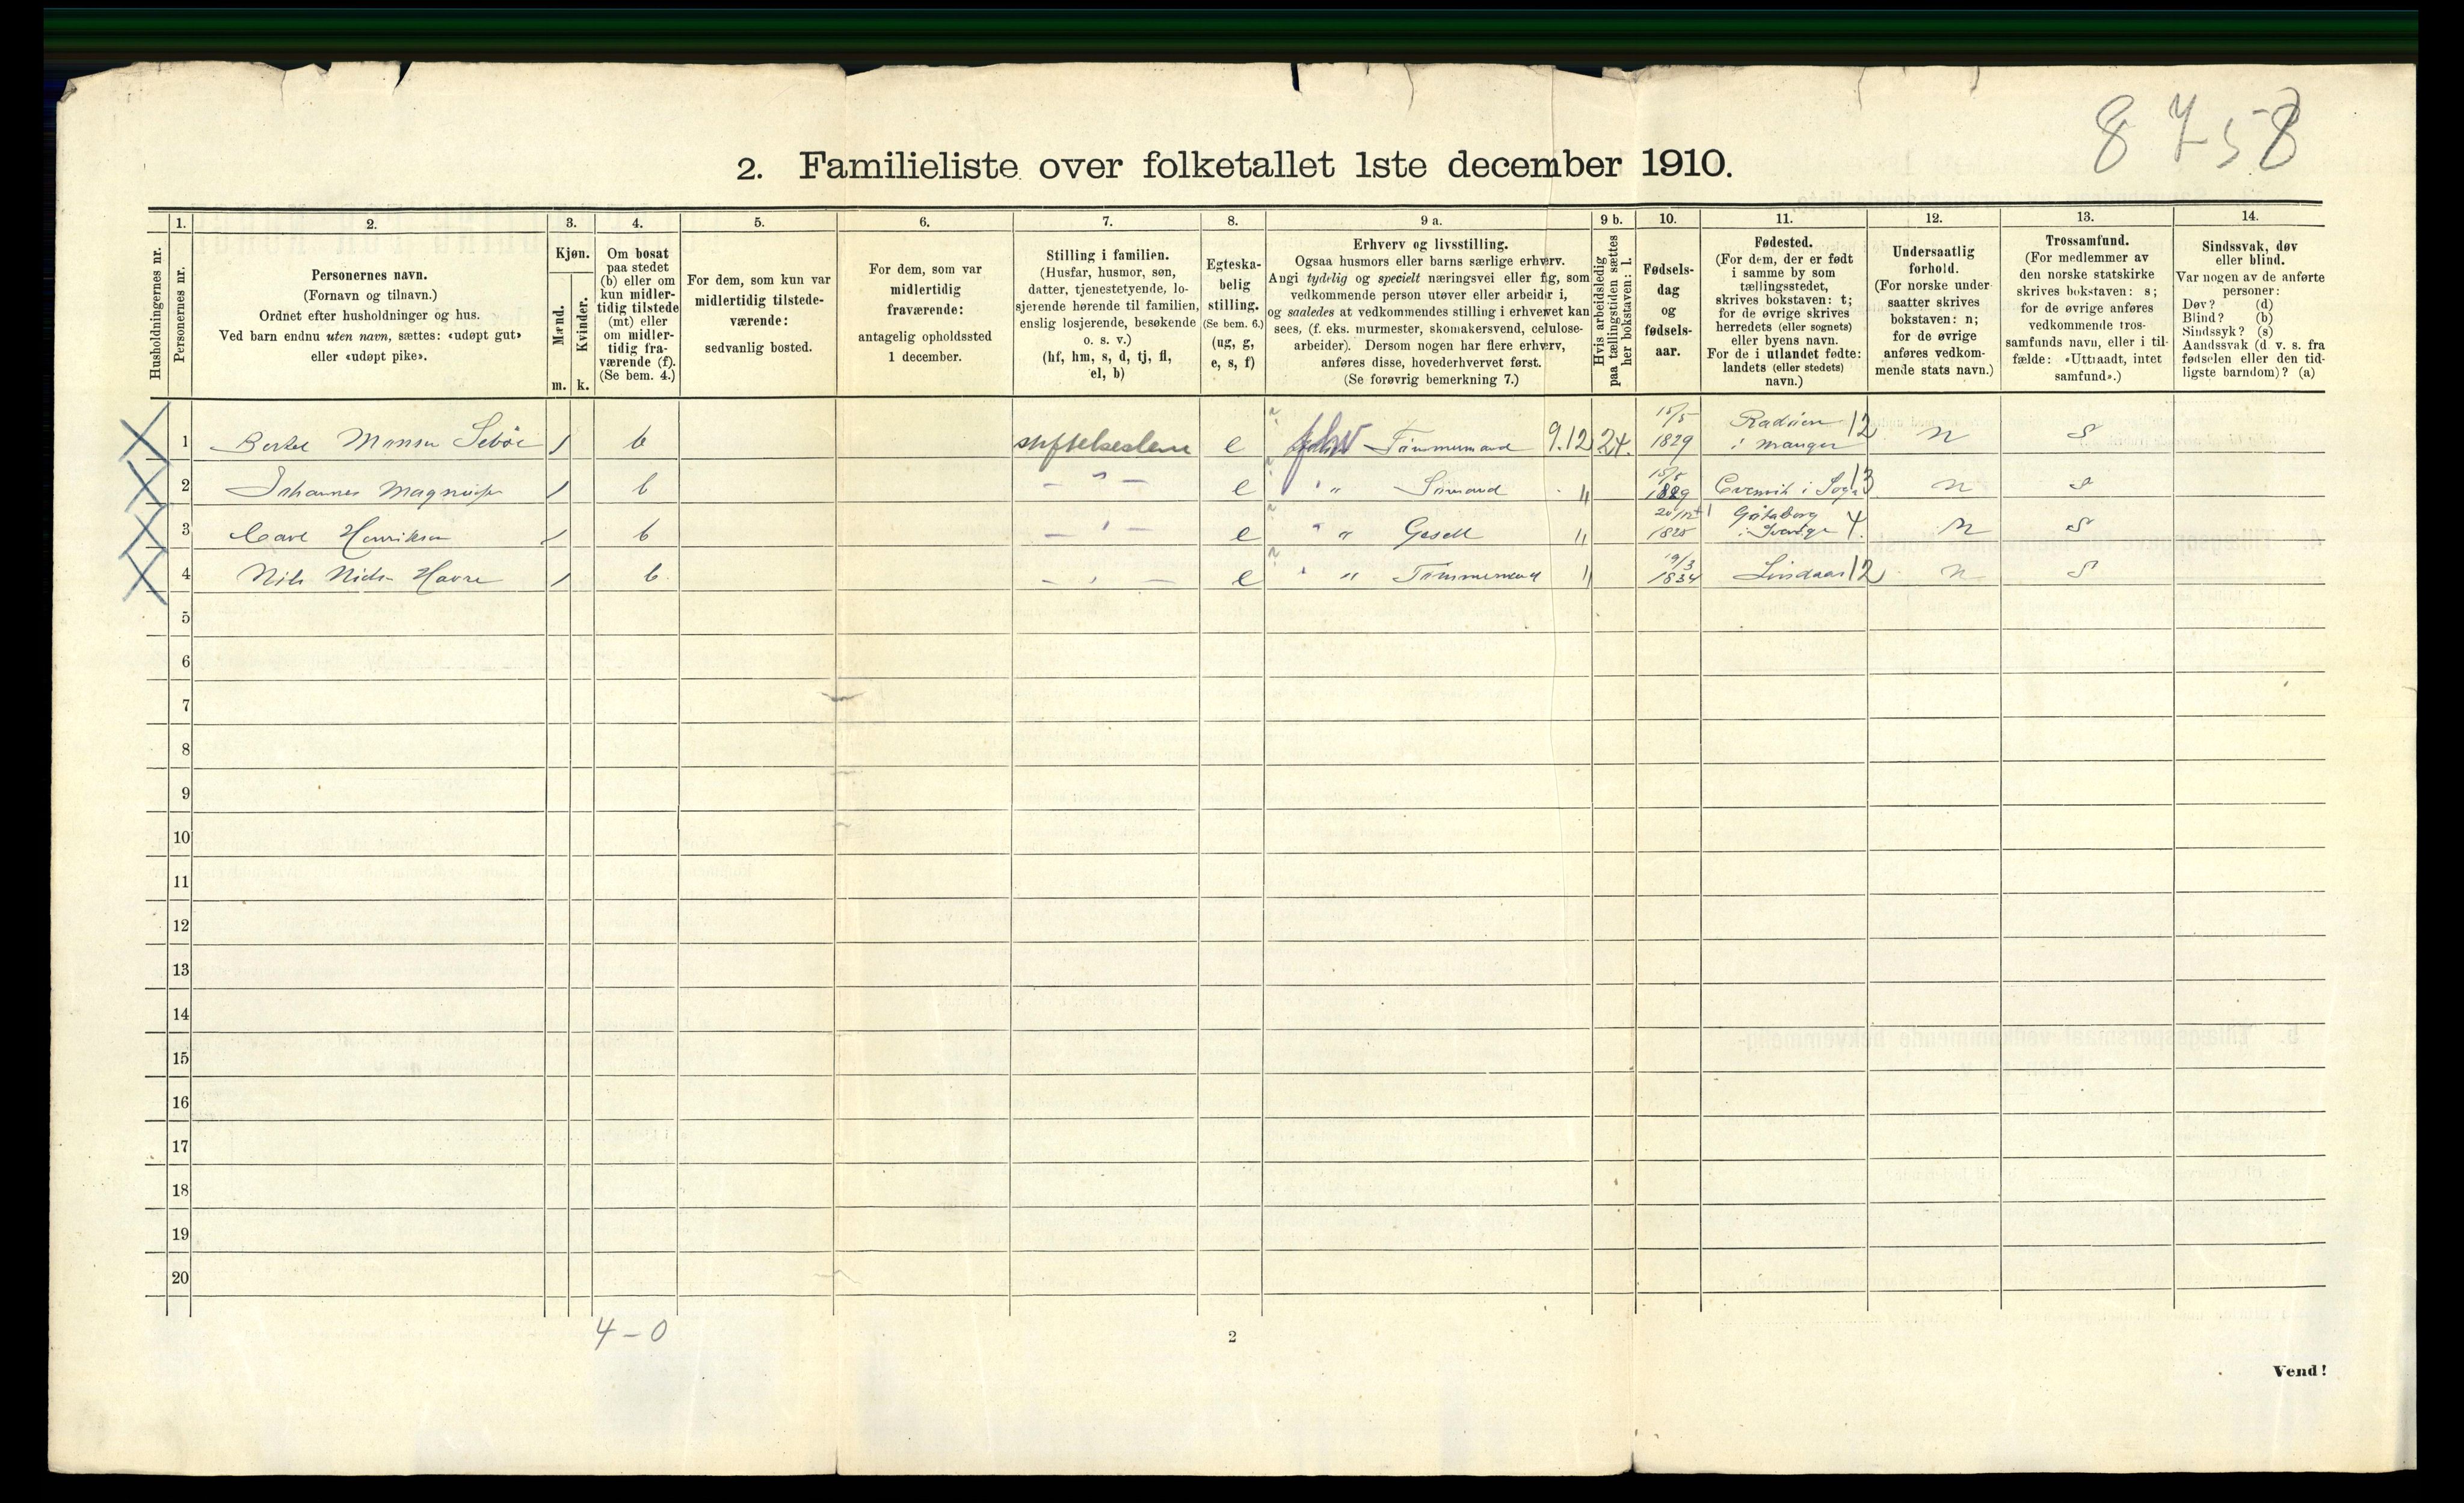 8758
2. Familieliste over folketallet 1ste december 1910.
Husholdningernes nr.
1.
Personernes nr.
2.
Personernes navn.
(Fornavn og tilnavn.)
Ordnet efter husholdninger og hus.
Ved barn endnu uten navn, sættes: «udøpt gut»
eller «udøpt pike».
3.
Kjøn.
Mænd.
Kvinder.
m. k.
4.
Om bosat
paa stedet
(b) eller om
kun midler-
tidig tilstede
(mt) eller
om midler-
tidig fra-
værende (f).
(Se bem. 4.)
5.
For dem, som kun var
midlertidig tilstede-
værende:
sedvanlig bosted.
6.
For dem, som var
midlertidig
fraværende:
antagelig opholdssted
1 december.
7.
Stilling i familien.
(Husfar, husmor, søn,
datter, tjenestetyende, lo-
sjerende hørende til familien,
enslig losjerende, besøkende
o. s. v.)
(hf, hm, s, d, tj, fl,
el, b)
8.
Egteska-
belig
stilling.
(Se bem. 6.)
(ug, g,
e, s, f)
9 a.
Erhverv og livsstilling.
Ogsaa husmors eller barns særlige erhverv.
Angi tydelig og specielt næringsvei eller fag, som
vedkommende person utøver eller arbeider i,
og saaledes at vedkommendes stilling i erhvervet kan
sees, (f. eks. murmester, skomakersvend, celulose-
arbeider). Dersom nogen har flere erhverv,
anføres disse, hovederhvervet først.
(Se forøvrig bemerkning 7.)
9 b.
Hvis arbeidsledig
paa tællingstiden sættes
her bokstaven: l.
10.
Fødsels-
dag
og
fødsels-
aar.
11.
Fødested.
(For dem, der er født
i samme by som
tællingsstedet,
skrives bokstaven: t;
for de øvrige skrives
herredets (eller sognets)
eller byens navn.
For de i utlandet fødte:
landets (eller stedets)
navn.)
12.
Undersaatlig
forhold.
(For norske under-
saatter skrives
bokstaven: n;
for de øvrige
anføres vedkom-
mende stats navn.)
13.
Trossamfund.
(For medlemmer av
den norske statskirke
skrives bokstaven: s;
for de øvrige anføres
vedkommende tros-
samfunds navn, eller i til-
fælde: «Uttraadt, intet
samfund».)
14.
Sindssvak, døv
eller blind.
Var nogen av de anførte
personer:
Døv? (d)
Blind? (b)
Sindssyk? (s)
Aandssvak (d. v. s. fra
fødselen eller den tid-
ligste barndom)? (a)
1 Bertel Monsen Sebøe 1 b stiftelseslem e fhv Tømmermand 9.12 24. 15/5 1829 Radöen i Manger 12 n s
2 Johannes Magnusen 1 b – " – e " " Sömand " 15/5 1829 Evenvik i Sogn 13 n s
3 Carl Henriksen 1 b – " – e " " Gesell " 20/12 Gøteborg i Sverige 4. n s
4 Nils Nielsn Havre 1 b – " – e " " Tømmermand " 19/3 1834 Lindaas 12 n s
5
6
7
8
9
10
11
12
13
14
15
16
17
18
19
20
4–0
2
Vend!